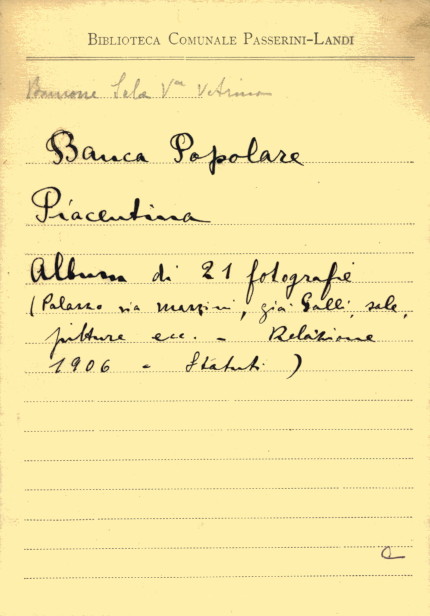 BIBLIOTECA COMUNALE PASSERINI-LANDI
Sala Vª Vetrina
Banca Popolare
Piacentina
Album di 21 fotografie
(Palazzo via Mazzini, già Galli, sale,
pitture ecc. - Relazione
1906 - Statuti)